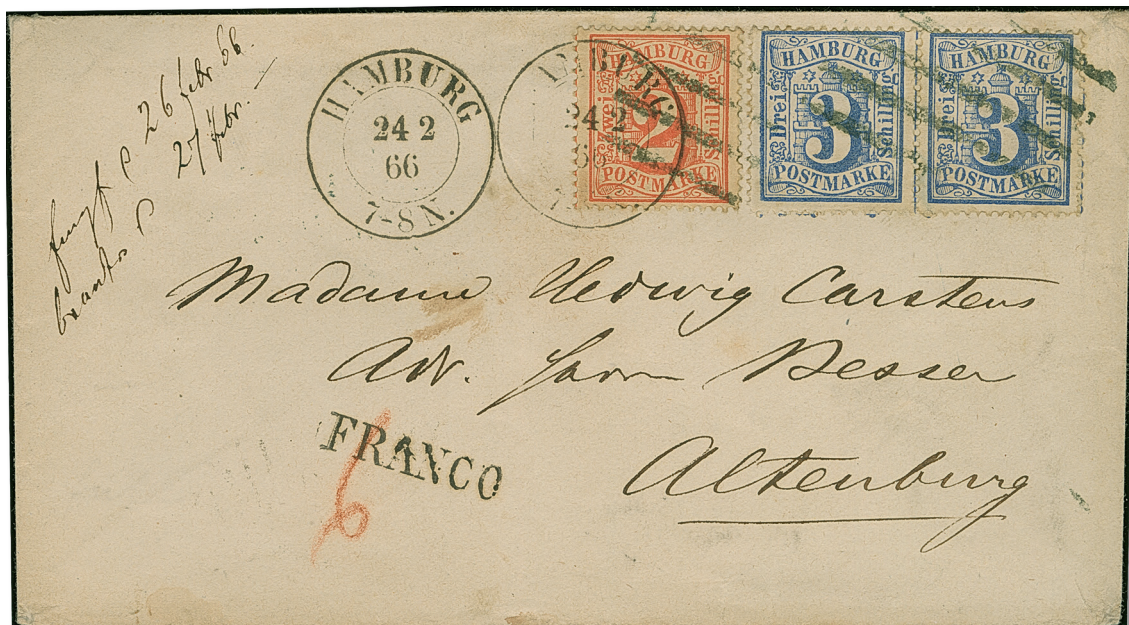 26 Febr 66.
27 Febr.
HAMBURG
24 2
66
7-8 N.
HAMBURG
24 2
66
HAMBURG
Zwei
2
Schilling
POSTMARKE
HAMBURG
Drei
3
Schilling
POSTMARKE
HAMBURG
Drei
3
Schilling
POSTMARKE
Madame Hedwig Carstens
Adr. Herrn Besser
Altenburg
FRANCO
6